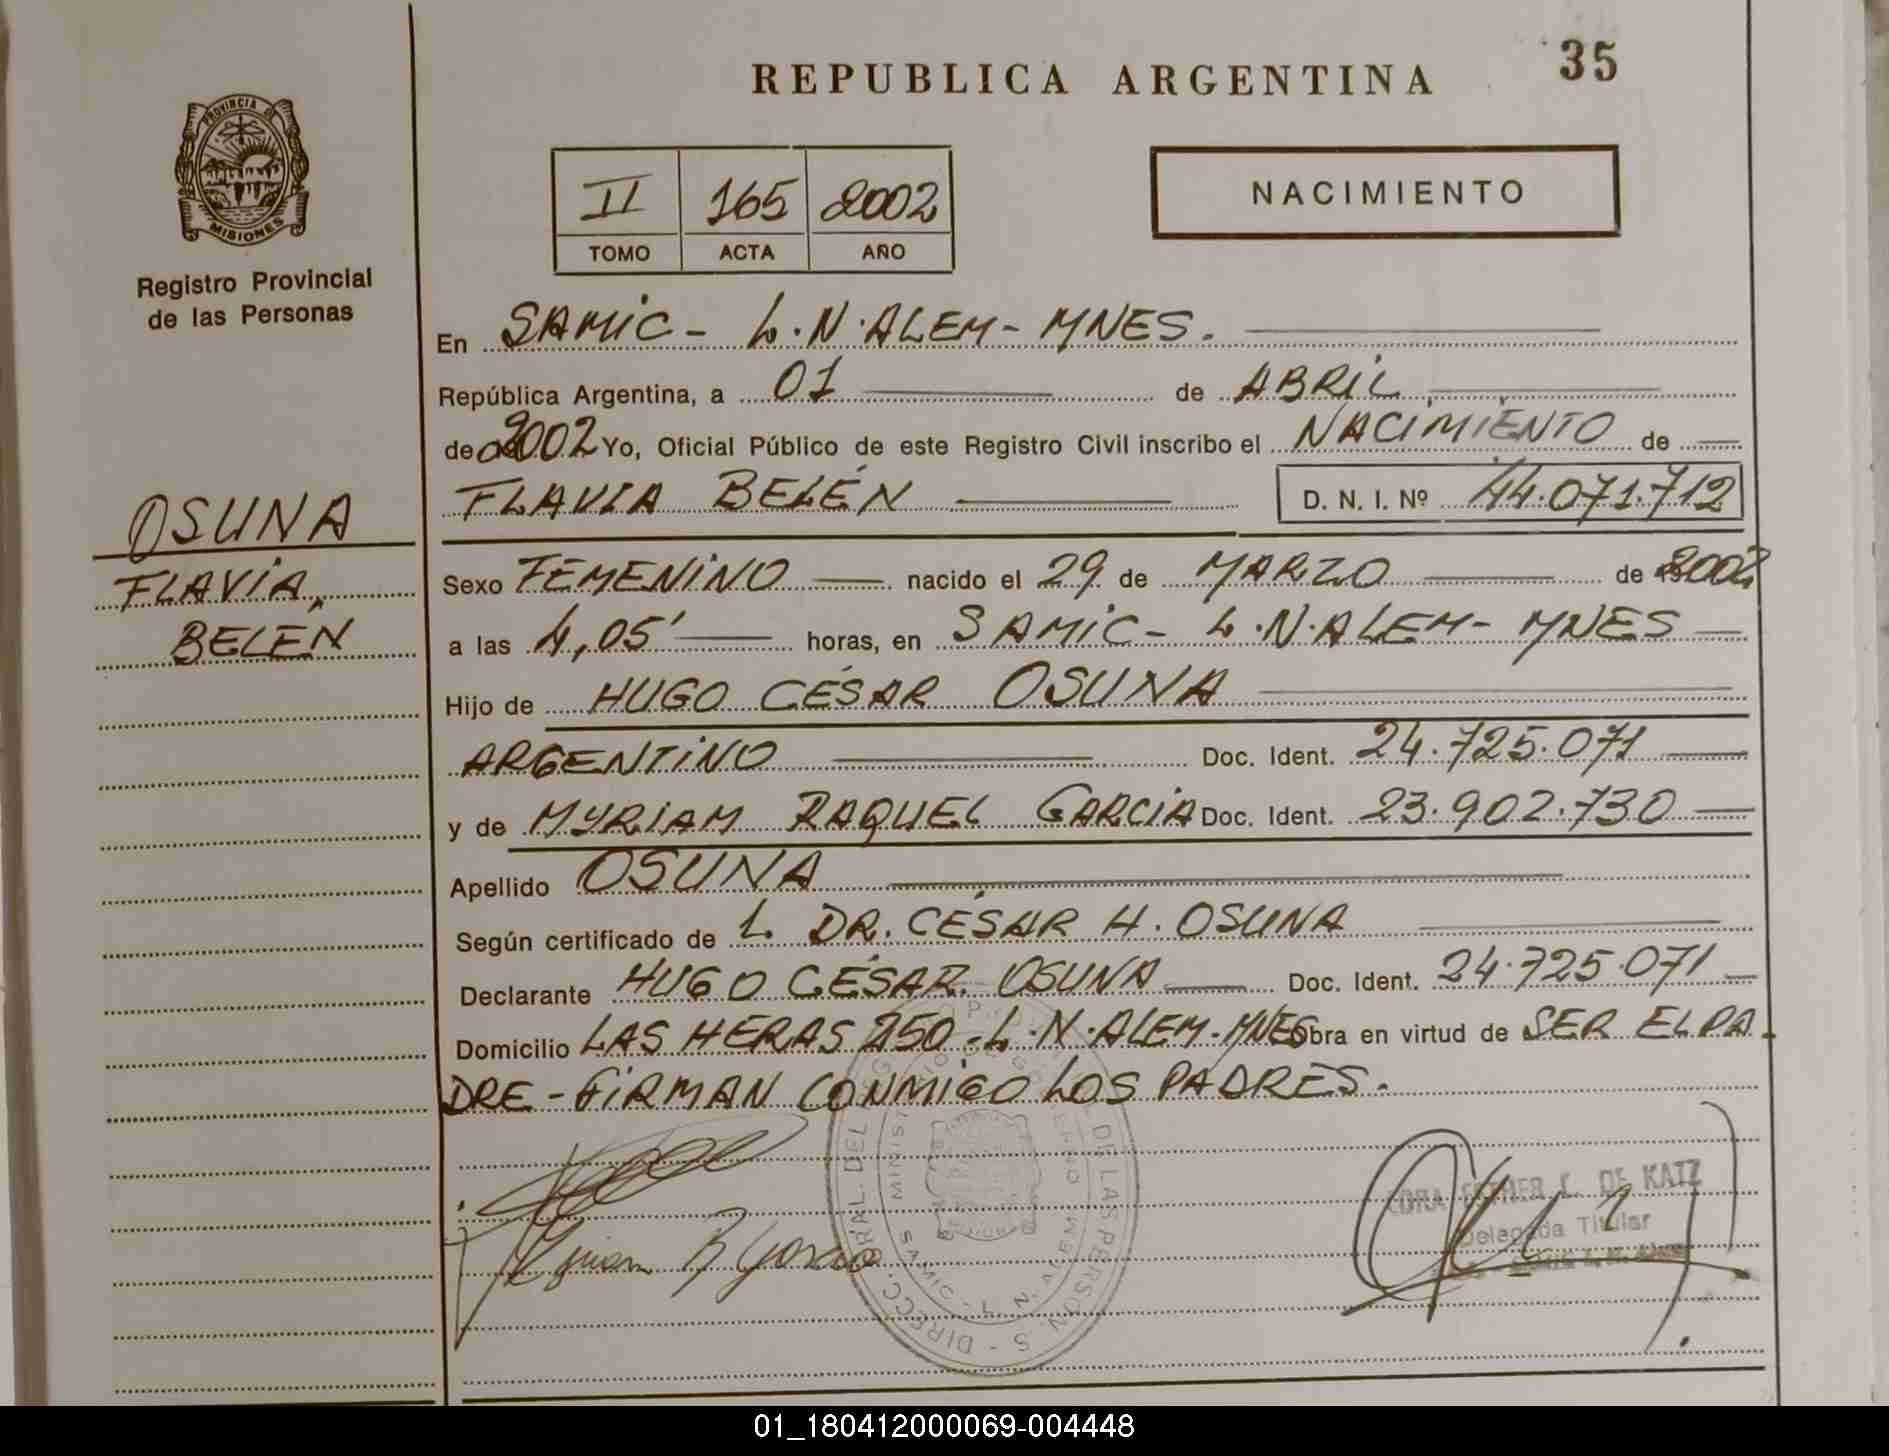 REPUBLICA ARGENTINA
35
PROVINCIA DE
MISIONES
Registro Provincial
de las Personas
II 165 2002
TOMO ACTA AÑO
NACIMIENTO
En SAMIC - L.N.ALEM - MNES.
República Argentina, a 01 de ABRIL
de 2002 Yo, Oficial Público de este Registro Civil inscribo el NACIMIENTO de
FLAVIA BELÉN D. N. I. Nº 44.071.712
OSUNA
FLAVIA
BELÉN
Sexo FEMENINO nacido el 29 de MARZO de 2002
a las 4,05' horas, en SAMIC - L.N.ALEM - MNES
Hijo de HUGO CÉSAR OSUNA
ARGENTINO Doc. Ident. 24.725.071
y de MYRIAM RAQUEL GARCIA Doc. Ident. 23.902.730
Apellido OSUNA
Según certificado de L. DR. CÉSAR H. OSUNA
Declarante HUGO CÉSAR OSUNA Doc. Ident. 24.725.071
Domicilio LAS HERAS 250 - L.N.ALEM - MNES Obra en virtud de SER EL PA-
DRE - FIRMAN CONMIGO LOS PADRES.
DE KATZ
Delegada Titular
DE LAS PERSON S
01_180412000069-004448